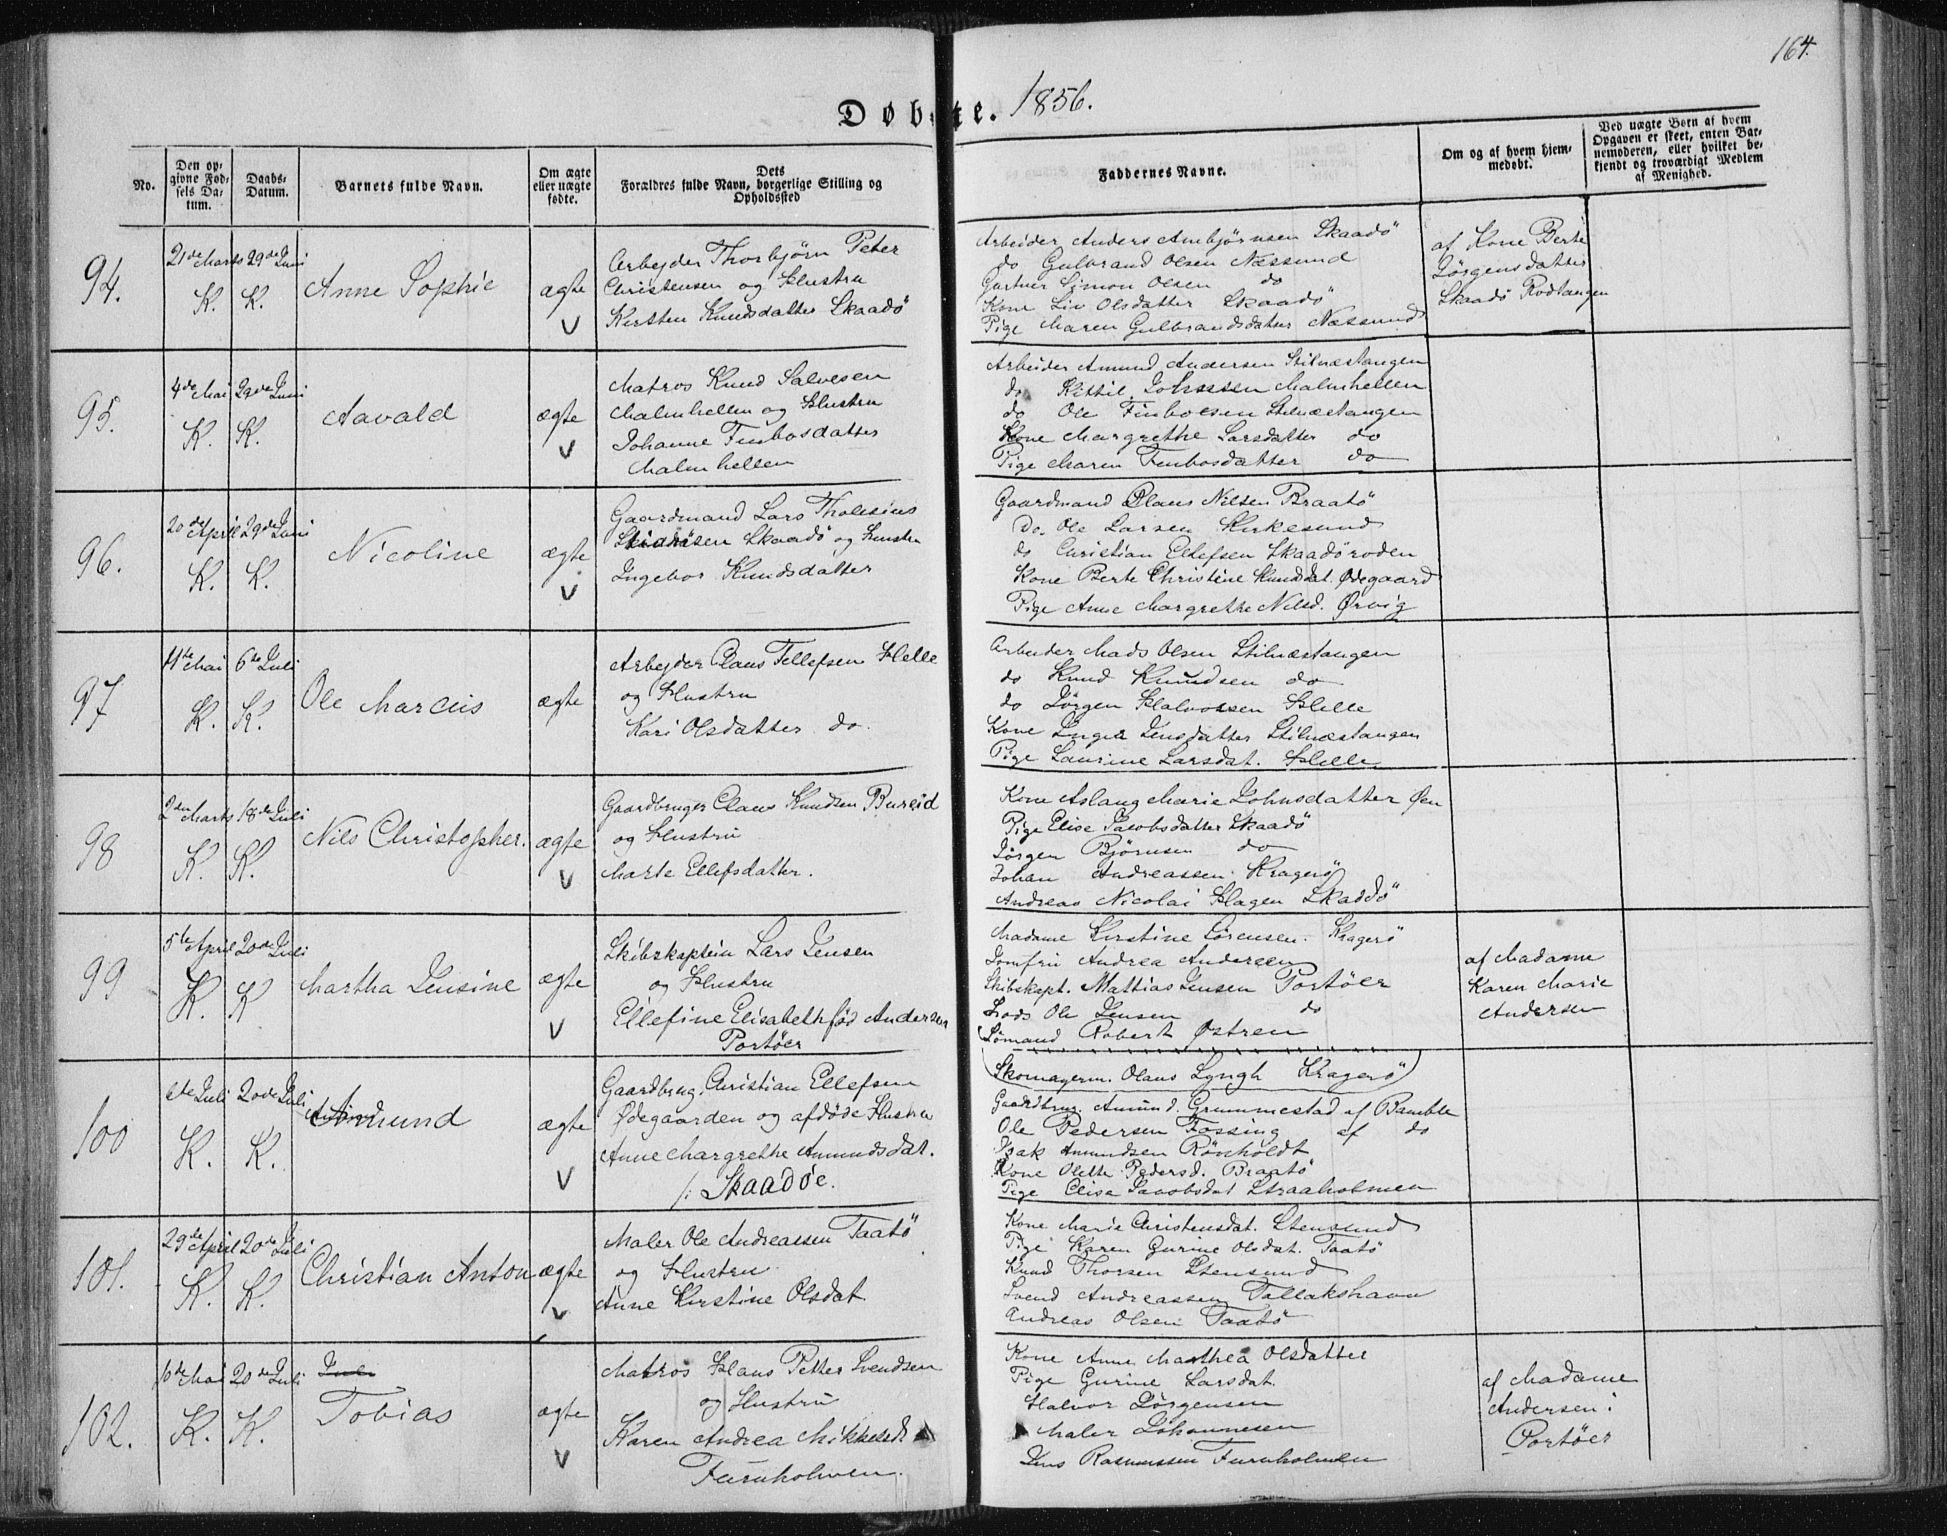 164.
Døbte. 1856.
No.
Den op-
givne Fød-
sels Da-
tum.
Daabs-
Datum.
Barnets fulde Navn.
Om ægte
eller uægte
fødte.
Dets
Forældres fulde Navn, borgerlige Stilling og
Opholdssted
Faddernes Navne.
Om og af hvem hjem-
medøbt.
Ved uægte Børn af hvem
Opgaven er skeet, enten Bar-
nemoderen, eller hvilket be-
kjendt og troværdigt Medlem
af Menighed.
94.
21de Marts
K.
29de Juni
K.
Anne Sophie
ægte
V
Arbejder Thorbjørn Peter
Christensen og Hustru
Kirsten Knudsdatter Skaadö
Arbeider Anders Ambjørnsen Skaadö
do Gulbrand Olsen Næssund
Gartner Simon Olsen do
Kone Liv Olsdatter Skaadö
Pige Maren Gulbrandsdatter Næssund
af Kone Berte
Jørgensdatter
Skaadö Rødtangen
95.
4de Mai
K.
29de Juni
K.
Aavald
ægte
V
Matros Knud Salvesen
Malmhellen og Hustru
Johanne Finbosdatter
Malmhellen
Arbeider Amund Andersen Stilnæstangen
do Kittil Johnsen Malmhellen
do Ole Finboesen Stilnæstangen
Kone Margrethe Larsdatter do
Pige Maren Finbosdatter do
96.
20de April
K.
29de Juni
K.
Nicoline
ægte
V
Gaardmand Lars Tholesius
Skaadö og Hustru
Ingebor Knudsdatter
Gaardmand Claus Nilsen Braatö
Do. Ole Larsen Kirkesund
do Christian Ellefsen Skaadöroden
Kone Berte Christine Knudsdat. Ødegaard
Pige Anne Margrethe Nilsd. Ørvig
97
11te Mai
K.
6te Juli
K.
Ole Marcus
ægte
Arbejder Claus Tellefsen Helle
og Hustru
Kari Olsdatter do.
Arbeider Mads Olsen Stilnæstangen
do Knud Knudsen do
do Jörgen Halvorsen Helle
Kone Inger Jensdatter Stilnæstangen
Pige Laurine Larsdat. Helle
98
2den Marts
K.
18de Juli
K.
Nils Christopher.
ægte
V
Gaardbruger Claus Knudsen Bureid
og Hustru
Marte Ellefsdatter.
Kone Aslaug Marie Johnsdatter Øen
Pige Elise Jacobsdatter Skaadö
Jørgen Bjørnsen do
Johan Andreassen Kragerö
Andreas Nicolai Hagen Skaadö
99
5te April
K.
20de Juli
K
Martha Jensine
ægte
V
Skibskaptein Lars Jensen
og Hustru
Ellefine Elisabeth fød Andersen
Portöer
Madame Kirstine Sörensen. Kragerö
Jomfru Andrea Andersen
Skibskapt. Mattias Jensen Portöer
Lods Ole Jensen do
Sömand Robert Østren
(Skomagerm. Olaus Lyngh Kragerö)
af Madame
Karen Marie
Andersen
100
6te Juli
K.
20de Juli
K.
Amund
ægte
V
Gaardbrug. Christian Ellefsen
Ødegaarden og afdøde Hustru
Anne Margrethe Amundsdat.
/: Skaadöe.
Gaardbrug. Amund Grummestad af Bamble
Ole Pedersen Fossing af do
Isak Amundsen Rönholdt
Kone Olette Pedersd. Braatö
Pige Elise Jacobsdat Straaholmen
101.
29de April
K.
20de Juli
K.
Christian Anton
ægte
V
Maler Ole Andreassen Taatö
og Hustru
Anne Kirstine Olsdat
Kone Marie Christensdat. Stensund
Pige Karen Gurine Olsdat. Taatö
Knud Thorsen Stensund
Svend Andreassen Tallakshavn
Andreas Olsen Taatö
102.
6de Mai
K.
20de Juli
K.
Tobias
ægte
V
Matros Hans Petter Svendsen
og Hustru
Karen Andrea Mikkelsd
Furuholmen.
Kone Anne Marthea Olsdatter
Pige Gurine Larsdat.
Halvor Jörgensen
Maler Johannesen
Jens Rasmussen Furuholmen
af Madame
Andersen i
Portöer